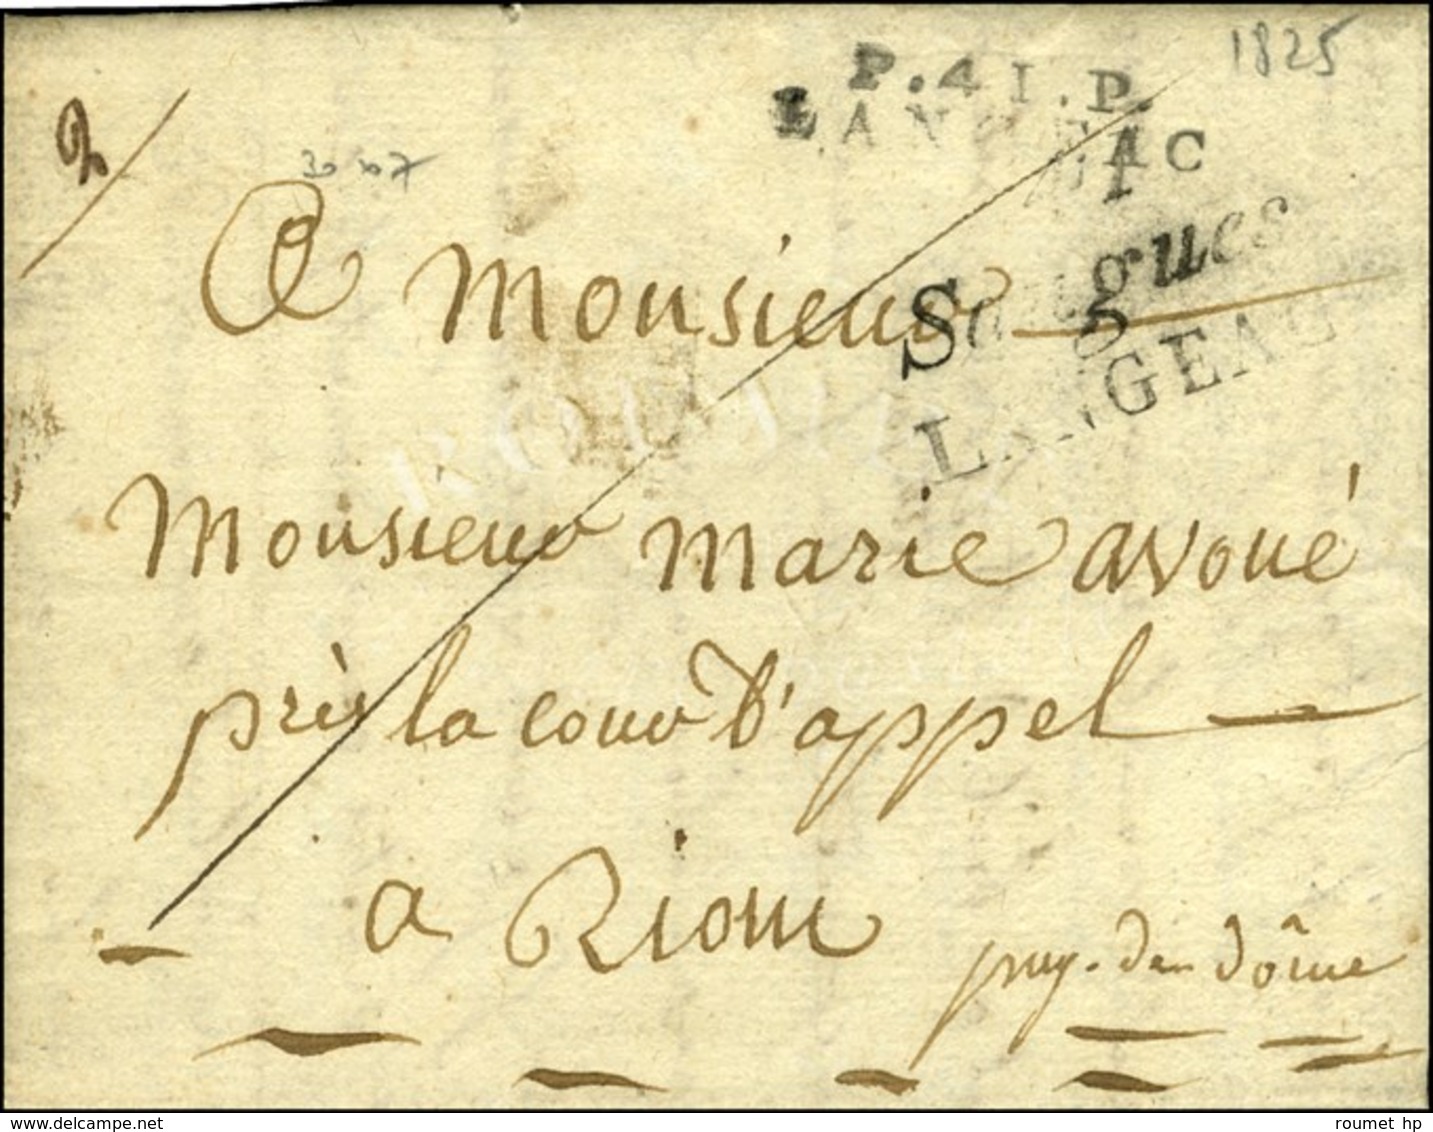 1825
P.41.P.
LANGEAC
2
41
Saugues
LANGEAC
A Monsieur
Monsieur Marie avoué
près la cour d'appel
a Riom
puy-den dôme
roumet hp